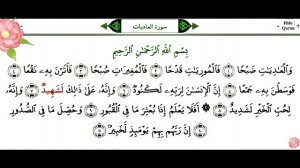 سورة العاديات
Quran
بِسْمِ اللَّهِ الرَّحْمَٰنِ الرَّحِيمِ
وَالْعَٰدِيَٰتِ ضَبْحًا ۝ فَالْمُورِيَٰتِ قَدْحًا ۝ فَالْمُغِيرَٰتِ صُبْحًا ۝ فَأَثَرْنَ بِهِۦ نَقْعًا ۝
فَوَسَطْنَ بِهِۦ جَمْعًا ۝ إِنَّ الْإِنسَٰنَ لِرَبِّهِۦ لَكَنُودٌ ۝ وَإِنَّهُۥ عَلَىٰ ذَٰلِكَ لَشَهِيدٌ ۝ وَإِنَّهُۥ
لِحُبِّ الْخَيْرِ لَشَدِيدٌ ۝ أَفَلَا يَعْلَمُ إِذَا بُعْثِرَ مَا فِي الْقُبُورِ ۝ وَحُصِّلَ مَا فِي الصُّدُورِ
۝ إِنَّ رَبَّهُم بِهِمْ يَوْمَئِذٍ لَّخَبِيرٌۢ ۝